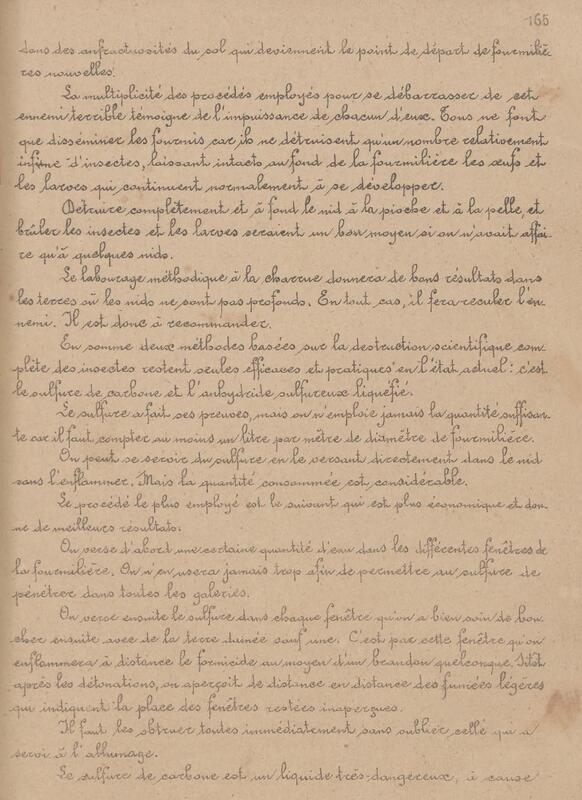 165
dans des anfractuosités du sol qui deviennent le point de départ de fourmiliè-
res nouvelles.
La multiplicité des procédés employés pour se débarrasser de cet
ennemi terrible témoigne de l'impuissance de chacun d'eux. Tous ne font
que disséminer les fourmis car ils ne détruisent qu'un nombre relativement
infime d'insectes, laissant intacts au fond de la fourmilière les œufs et
les larves qui continuent normalement à se développer.
Détruire complètement et à fond le nid à la pioche et à la pelle, et
brûler les insectes et les larves seraient un bon moyen si on n'avait affai-
re qu'à quelques nids.
Le labourage méthodique à la charrue donnera de bons résultats dans
les terres où les nids ne sont pas profonds. En tout cas, il fera reculer l'en-
nemi. Il est donc à recommander.
En somme deux méthodes basées sur la destruction scientifique com-
plète des insectes restent seules efficaces et pratiques en l'état actuel: c'est
le sulfure de carbone et l'anhydride sulfureux liquéfié.
Le sulfure a fait ses preuves, mais on n'emploie jamais la quantité suffisan-
te car il faut compter au moins un litre par mètre de diamètre de fourmilière.
On peut se servir du sulfure en le versant directement dans le nid
sans l'enflammer. Mais la quantité consommée est considérable.
Le procédé le plus employé est le suivant qui est plus économique et don-
ne de meilleurs résultats:
On verse d'abord une certaine quantité d'eau dans les différentes fenêtres de
la fourmilière. On n'en usera jamais trop afin de permettre au sulfure de
pénétrer dans toutes les galeries.
On verse ensuite le sulfure dans chaque fenêtre qu'on a bien soin de bou-
cher ensuite avec de la terre damée sauf une. C'est par cette fenêtre qu'on
enflammera à distance le formicide au moyen d'un brandon quelconque. Sitôt
après les détonations, on aperçoit de distance en distance des fumées légères
qui indiquent la place des fenêtres restées inaperçues.
Il faut les obtruer toutes immédiatement sans oublier celle qui a
servi à l'allumage.
Le sulfure de carbone est un liquide très-dangereux, à cause